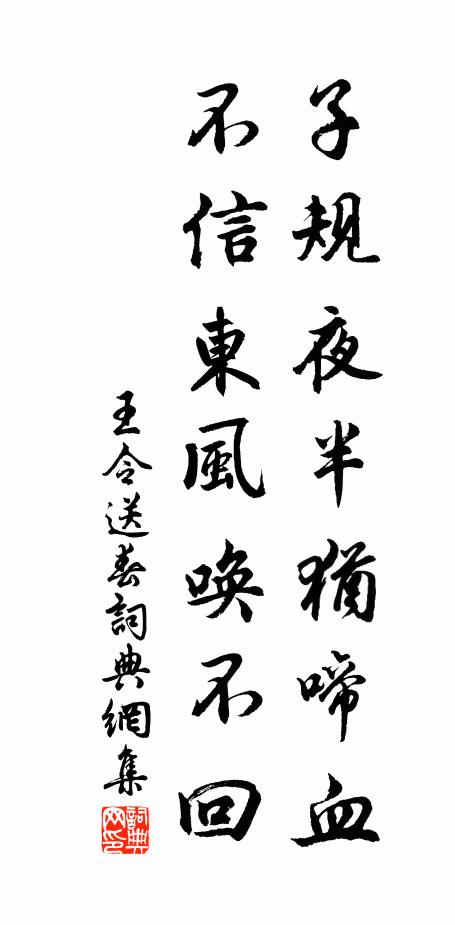 子規夜半猶啼血
不信東風喚不回
王令送春詞典網集
詞典
网印